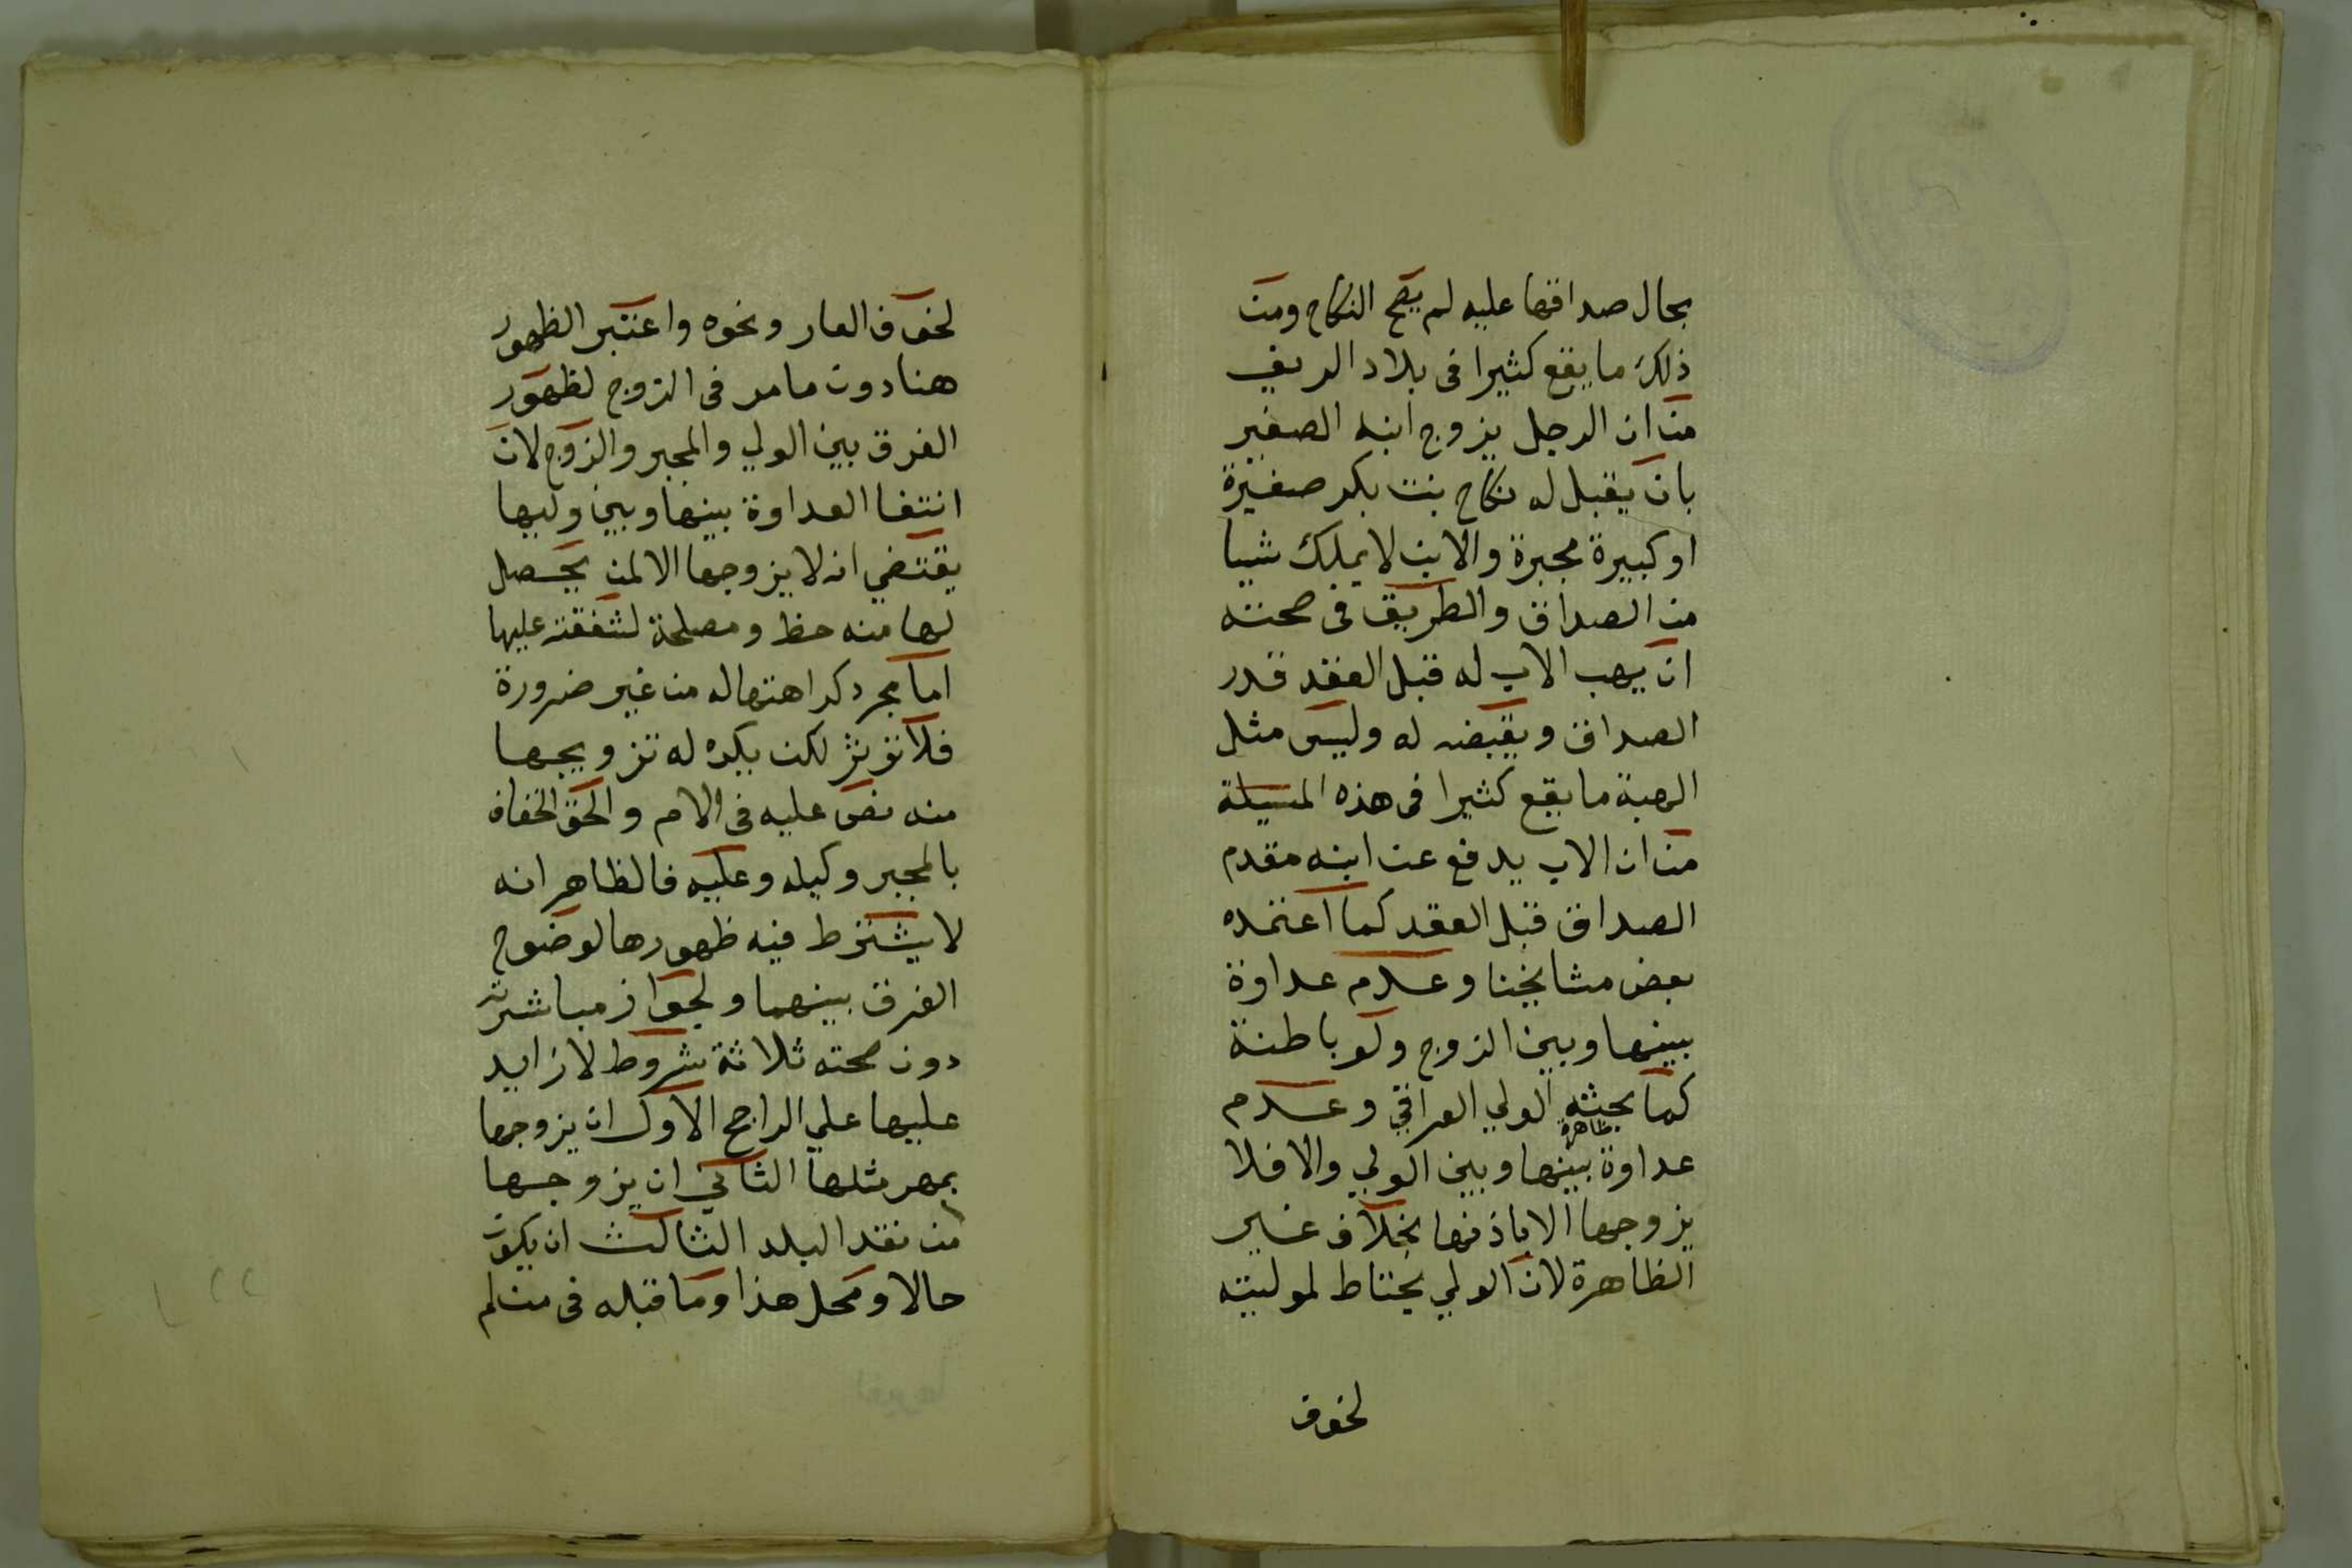 بحال صداقها عليه لم يصح النكاح ومن
ذلك ما يقع كثيرا في بلاد الريف
من ان الرجل يزوج ابنه الصغير
بان يقبل له نكاح بنت بكر صغيرة
او كبيرة مجبرة والابن لا يملك شيا
من الصداق والطريق في صحته
ان يهب الاب له قبل العقد قدر
الصداق ويقبضه له وليس مثل
الهبة ما يقع كثيرا في هذه المسيلة
من ان الاب يدفع عن ابنه مقدم
الصداق قبل العقد كما اعتمده
بعض مشايخنا وعدم عداوة
بينها وبين الزوج ولو باطنة
كما بحثه الولي العراقي وعدم
عداوة ظاهرة بينها وبين الولي والا فلا
يزوجها الا باذنها بخلاف غير
الظاهرة لان الولي يحتاط لموليته
لخوف
لخوف العار ونحوه واعتبر الظهور
هنا دون ما مر في الزوج لظهور
الفرق بين الولي والمجبر والزوج لان
انتفا العداوة بينها وبين وليها
يقتضي انه لا يزوجها الا لمن يحصل
لها منه حظ ومصلحة لشفقته عليها
اما مجرد كراهتها له من غير ضرورة
فلا تؤثر لكن يكره له تزويجها
منه نص عليه في الام والحق الخفاف
بالمجبر وكيله وعليه فالظاهر انه
لا يشترط فيه ظهورها لوضوح
الفرق بينهما ولجواز مباشرته
دون صحته ثلاثة شروط لا زايد
عليها علي الراجح الاول ان يزوجها
بمهر مثلها الثاني ان يزوجها
من نقد البلد الثالث ان يكون
حالا ومحل هذا وما قبله في من لم